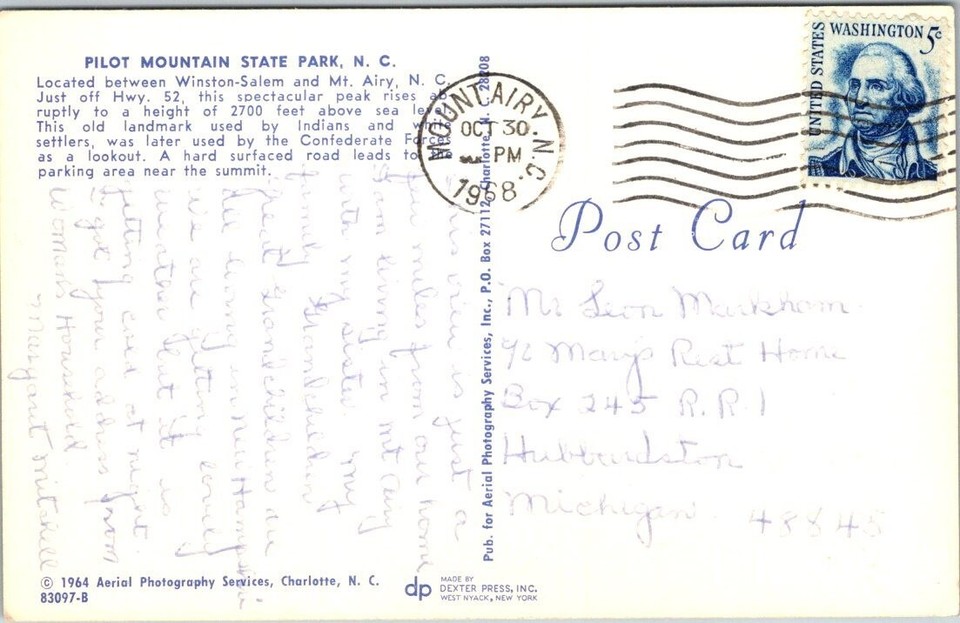 PILOT MOUNTAIN STATE PARK, N. C.
Located between Winston-Salem and Mt. Airy, N. C.
Just off Hwy. 52, this spectacular peak rises ab-
ruptly to a height of 2700 feet above sea level.
This old landmark used by Indians and
settlers, was later used by the Confederate Forces
as a lookout. A hard surfaced road leads to the
parking area near the summit.
MOUNT AIRY, N.C.
OCT 30
PM
1968
UNITED STATES
WASHINGTON 5c
Post Card
This view is just a
few miles from our home
I am living in Mt Airy
with my sister my
family Grandchildren
Great Grandchildren are
are living in New Hampshire
we are getting lovely
weather but it is
getting cold at night.
I got your address from
Womans Household
Margaret Mitchell
Pub. for Aerial Photography Services, Inc., P.O. Box 27112, Charlotte, N. C. 28208
Mr Leon Markham
% Marys Rest Home
Box 245 R.R.1
Hubbardston
Michigan 48845
© 1964 Aerial Photography Services, Charlotte, N. C.
83097-B
dp
MADE BY
DEXTER PRESS, INC.
WEST NYACK, NEW YORK